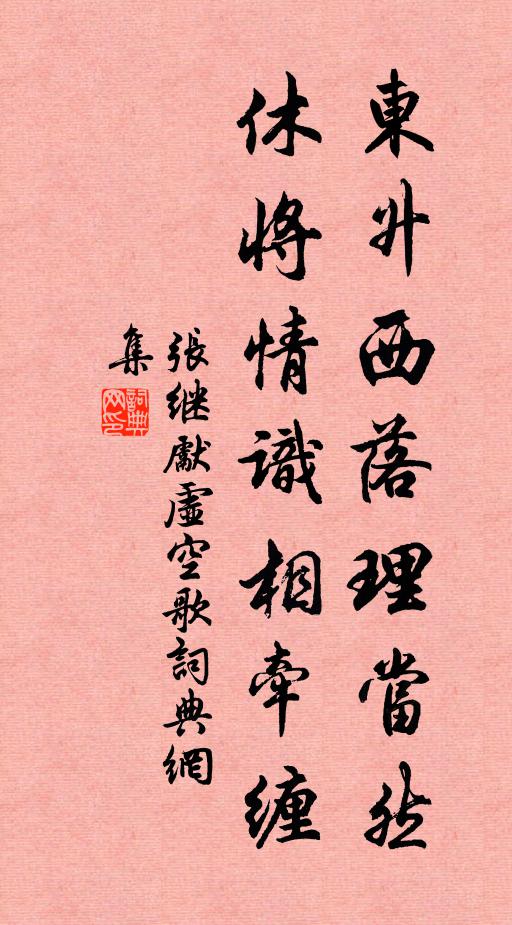 東升西落理當然
休將情識相牽纏
張継獻虛空歌詞典網
集
詞典
网印